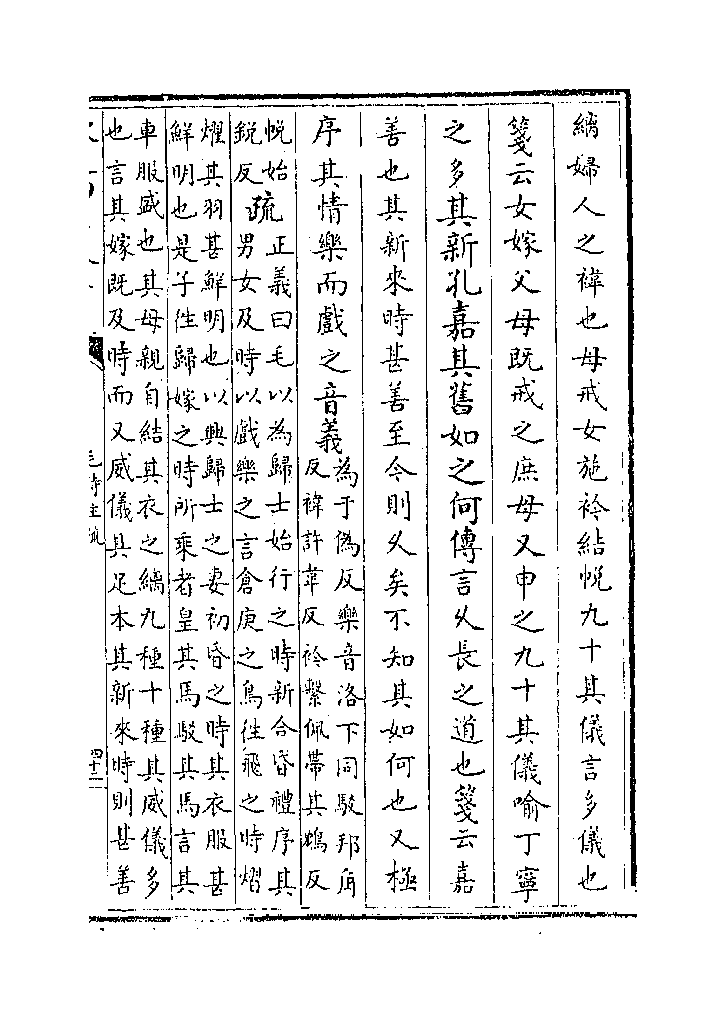 縭婦人之褘也母戒女施衿結帨九十其儀言多儀也
箋云女嫁父母既戒之庶母又申之九十其儀喻丁寧
之多其新孔嘉其舊如之何傳言乆長之道也箋云嘉
善也其新來時甚善至今則乆矣不知其如何也又極
序其情樂而戲之音義
為于偽反樂音洛下同駁邦角
反褘許韋反衿繫佩帶其鴆反
帨始
鋭反
疏
正義曰毛以為歸士始行之時新合昏禮序其
男女及時以戲樂之言倉庚之鳥徃飛之時熠
燿其羽甚鮮明也以興歸士之妻初昏之時其衣服甚
鮮明也是子徃歸嫁之時所乘者皇其馬駁其馬言其
車服盛也其母親自結其衣之縭九種十種其威儀多
也言其嫁既及時而又威儀具足本其新來時則甚善
毛詩注疏
四十二